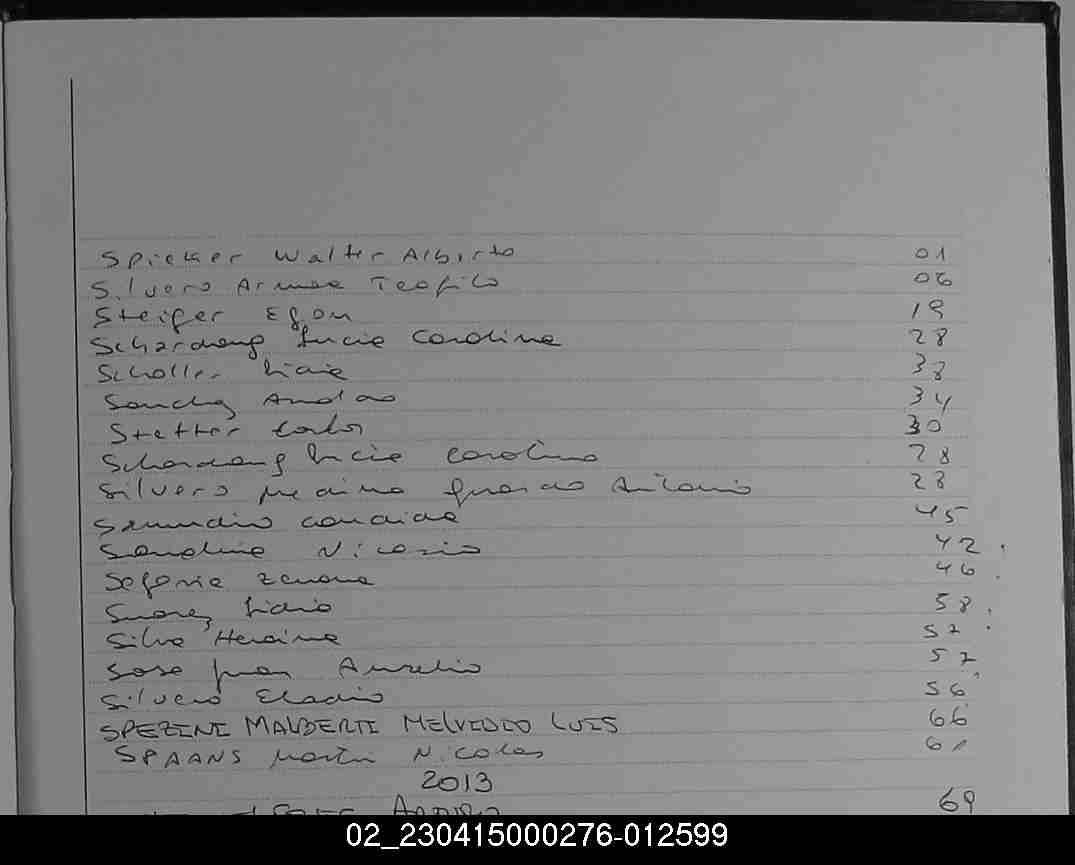 Spieker Walter Alberto 01
Silvero Armoa Teofilo 06
Steiger Egon 19
Schardong Lucia Carolina 28
Scholler Licia 38
Sanchez 34
Stetter Carlos 30
Schardong Lucia Carolina 28
Silvero Medina Antonio 28
Candida 45
Sanabria Nicasio 42
Zenona 46
Suarez Lidio 58
Silva 52
Sosa Juan Aurelio 52
Silvero Eladio 56
SPEZINI MALBERTI MELVIDIO LUIS 66
SPAANS Martin Nicolas 61
2013
69
02_230415000276-012599